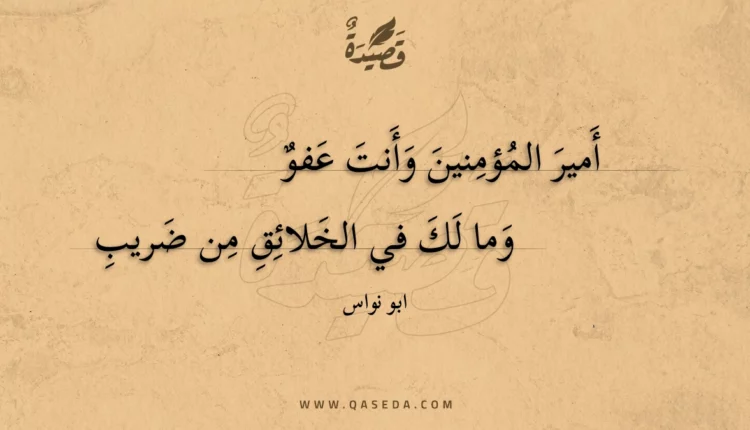 قَصِيْدَةٌ
أَميرَ المُؤمِنينَ وَأَنتَ عَفوٌ
وَما لَكَ في الخَلائِقِ مِن ضَريبِ
ابو نواس
WWW.QASEDA.COM